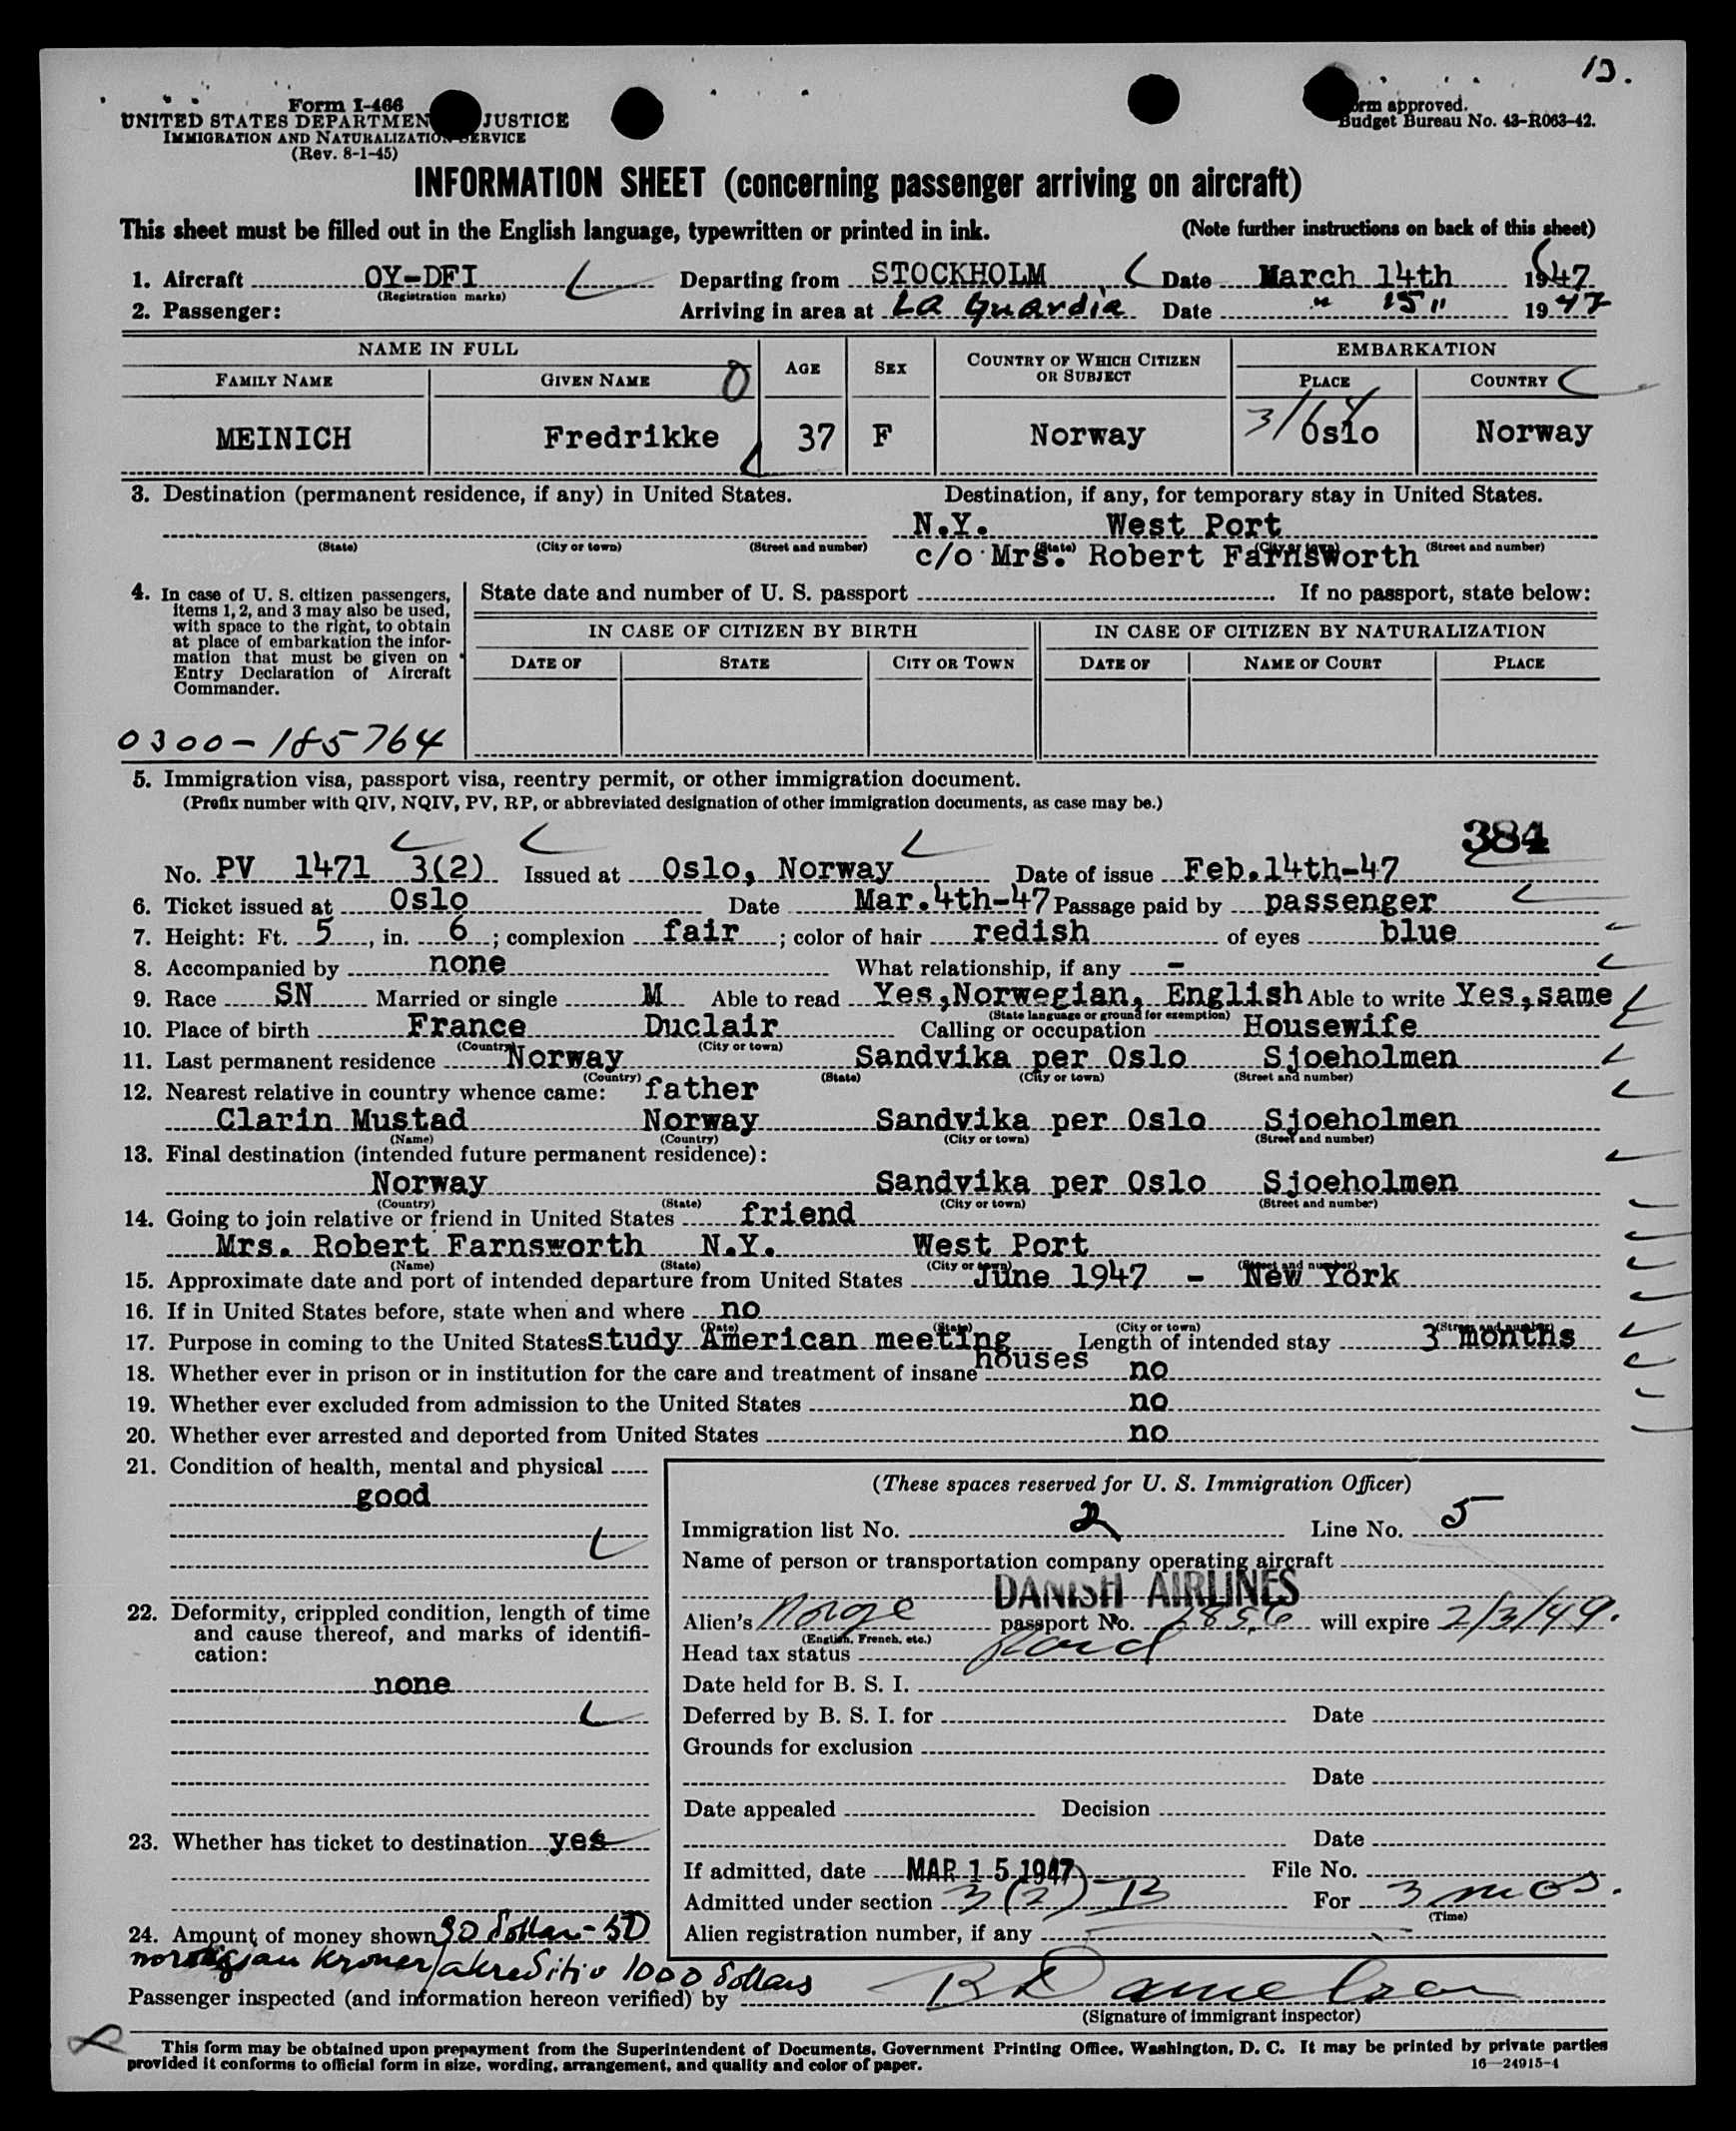 13.
Form I-466
UNITED STATES DEPARTMEN JUSTICE
IMMIGRATION AND NATURALIZATION SERVICE
(Rev. 8-1-45)
orm approved.
Budget Bureau No. 43-R063-42.
INFORMATION SHEET (concerning passenger arriving on aircraft)
This sheet must be filled out in the English language, typewritten or printed in ink. (Note further instructions on back of this sheet)
1. Aircraft OY-DFI Departing from STOCKHOLM Date March 14th 1947
(Registration marks)
2. Passenger: Arriving in area at La Guardia Date " 15 " 1947
NAME IN FULL AGE SEX COUNTRY OF WHICH CITIZEN OR SUBJECT EMBARKATION
FAMILY NAME GIVEN NAME PLACE COUNTRY
MEINICH Fredrikke 37 F Norway Oslo Norway
3. Destination (permanent residence, if any) in United States. Destination, if any, for temporary stay in United States.
N.Y. West Port
(State) (City or town) (Street and number) (State) (City or town) (Street and number)
c/o Mrs. Robert Farnsworth
4. In case of U. S. citizen passengers, items 1, 2, and 3 may also be used, with space to the right, to obtain at place of embarkation the information that must be given on Entry Declaration of Aircraft Commander.
State date and number of U. S. passport If no passport, state below:
IN CASE OF CITIZEN BY BIRTH IN CASE OF CITIZEN BY NATURALIZATION
DATE OF STATE CITY OR TOWN DATE OF NAME OF COURT PLACE
0300-185764
5. Immigration visa, passport visa, reentry permit, or other immigration document.
(Prefix number with QIV, NQIV, PV, RP, or abbreviated designation of other immigration documents, as case may be.)
384
No. PV 1471 3(2) Issued at Oslo, Norway Date of issue Feb.14th-47
6. Ticket issued at Oslo Date Mar.4th-47 Passage paid by passenger
7. Height: Ft. 5, in. 6; complexion fair; color of hair redish of eyes blue
8. Accompanied by none What relationship, if any -
9. Race SN Married or single M Able to read Yes,Norwegian, English Able to write Yes,same
(State language or ground for exemption)
10. Place of birth France Duclair Calling or occupation Housewife
(Country) (City or town)
11. Last permanent residence Norway Sandvika per Oslo Sjoeholmen
(Country) (State) (City or town) (Street and number)
12. Nearest relative in country whence came: father
Clarin Mustad Norway Sandvika per Oslo Sjoeholmen
(Name) (Country) (City or town) (Street and number)
13. Final destination (intended future permanent residence):
Norway Sandvika per Oslo Sjoeholmen
(Country) (State) (City or town) (Street and number)
14. Going to join relative or friend in United States friend
Mrs. Robert Farnsworth N.Y. West Port
(Name) (State) (City or town) (Street and number)
15. Approximate date and port of intended departure from United States June 1947 - New York
16. If in United States before, state when and where no
(Date) (State) (City or town) (Street and number)
17. Purpose in coming to the United States study American meeting houses Length of intended stay 3 months
18. Whether ever in prison or in institution for the care and treatment of insane no
19. Whether ever excluded from admission to the United States no
20. Whether ever arrested and deported from United States no
21. Condition of health, mental and physical
good
22. Deformity, crippled condition, length of time and cause thereof, and marks of identification:
none
23. Whether has ticket to destination yes
24. Amount of money shown 90 dollar - 50
kroner 1000 dollars
(These spaces reserved for U. S. Immigration Officer)
Immigration list No. 2 Line No. 5
Name of person or transportation company operating aircraft
DANISH AIRLINES
Alien's Norge passport No. will expire 2/3/49.
(English, French, etc.)
Head tax status
Date held for B. S. I.
Deferred by B. S. I. for Date
Grounds for exclusion
Date
Date appealed Decision
Date
If admitted, date MAR 15 1947 File No.
Admitted under section 3(2)-B For 3 mos.
(Time)
Alien registration number, if any
Passenger inspected (and information hereon verified) by
(Signature of immigrant inspector)
This form may be obtained upon prepayment from the Superintendent of Documents, Government Printing Office, Washington, D. C. It may be printed by private parties
provided it conforms to official form in size, wording, arrangement, and quality and color of paper. 16—24915-1